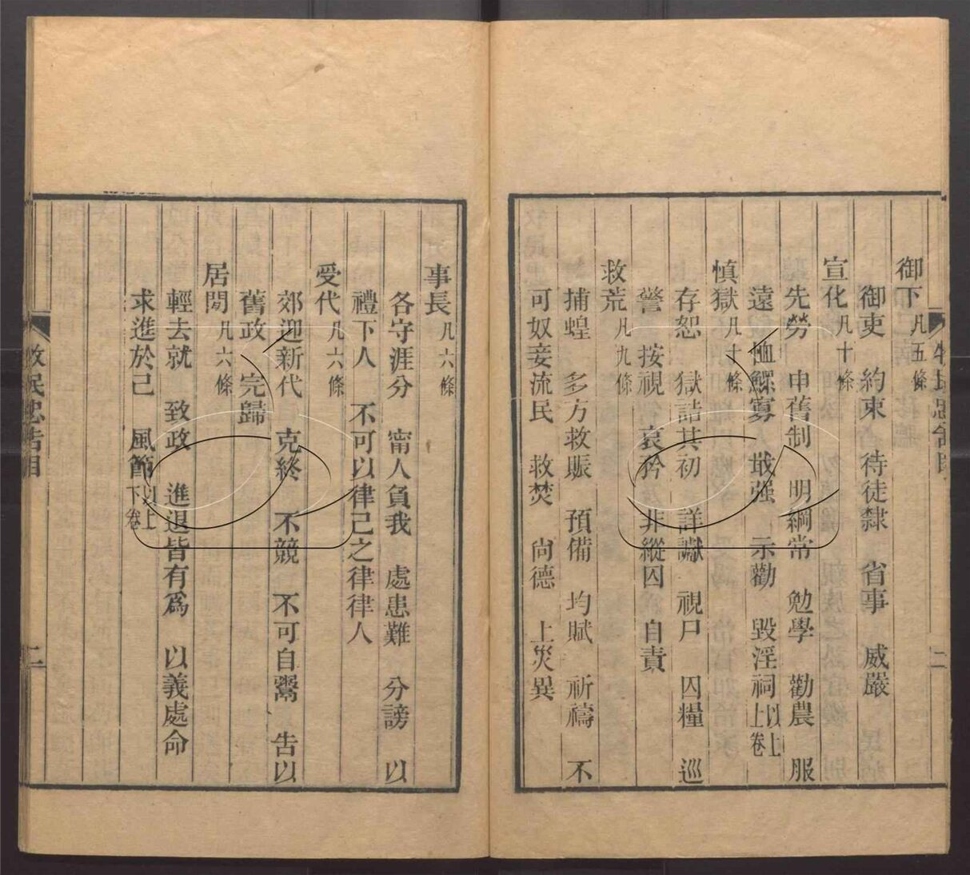 御下凡五條
御吏　約束　待徒隸　省事　威嚴
宣化凡十條
先勞　申舊制　明綱常　勉學　勸農　服
遠　恤鰥寡　戢强　示勸　毀淫祠以上上卷
慎獄凡十條
存恕　獄詰其初　詳讞　視尸　囚糧　巡
警　按視　哀矜　非縱囚　自責
救荒凡九條
捕蝗　多方救賑　預備　均賦　祈禱　不
可奴妾流民　救焚　尚德　上災異
事長凡六條
各守涯分　甯人負我　處患難　分謗　以
禮下人　不可以律己之律律人
受代凡六條
郊迎新代　克終　不競　不可自鬻　告以
舊政　完歸
居閒凡六條
輕去就　致政　進退皆有爲　以義處命
求進於己　風節以上下卷
牧民忠告目
二